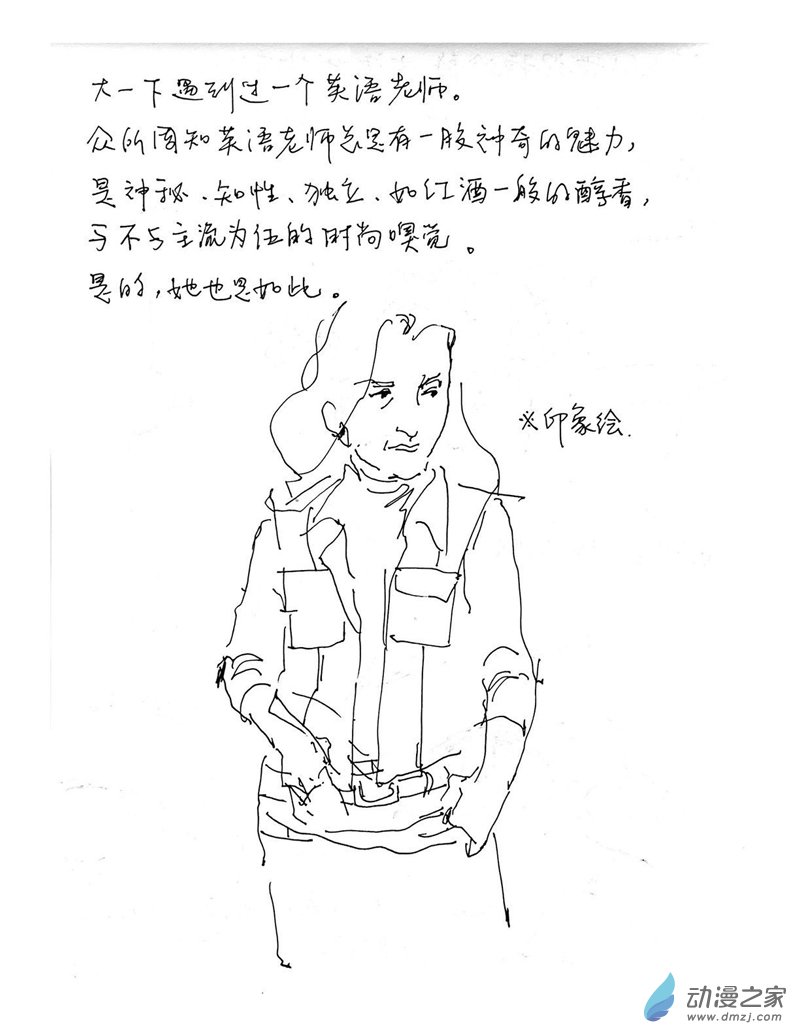 大一下遇到过一个英语老师。
众所周知英语老师总是有一股神奇的魅力,
是神秘、知性、独立、如红酒一般的醇香,
与不与主流为伍的时尚嗅觉。
是的,她也是如此。
※印象绘.
动漫之家
www.dmzj.com